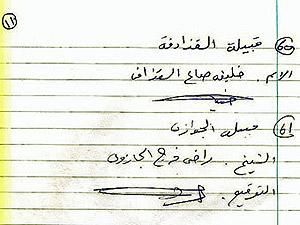 ١١
60 قبيلة القذاذفة
الاسم . خليفه صالح القذافى
61 قبيله الجوازى
الشيخ . راضى فرج الجازوى
التوقيع .